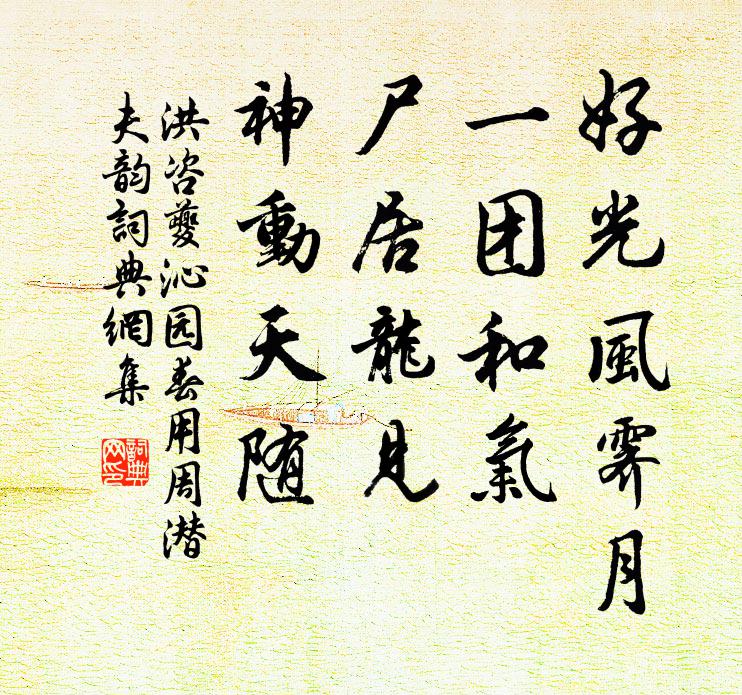 好光風霽月
一团和氣
尸居龍見
神動天随
洪咨夔沁园春用周潜
夫韵詞典網集
詞典
网印